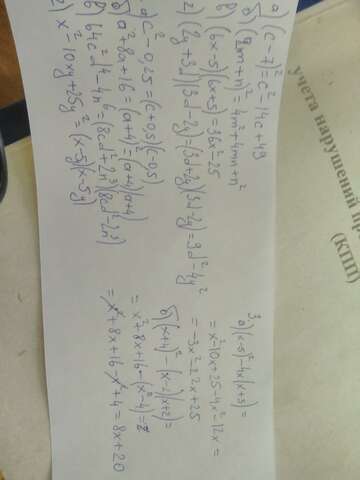 учета нарушений
(КПП)
а) (c-7)² = c² - 14c + 49
б) (2m+n)² = 4m² + 4mn + n²
в) (6x-5)(6x+5) = 36x² - 25
г) (2y+3d)(3d-2y) = (3d+2y)(3d-2y) = 3d² - 4y²
а) c² - 0,25 = (c+0,5)(-0,5)
б) a² + 8a + 16 = (a+4)² = (a+4)(a+4)
в) 64c²d⁴ - 4n⁶ = (8cd² + 2n³)(8cd² - 2n³)
г) x² - 10xy + 25y² = (x-5y)(x-5y)
3
а) (x-5)² - 4x(x+3) =
= x² - 10x + 25 - 4x² - 12x =
= -3x² - 22x + 25
б) (x+4)² - (x-2)(x+2) =
= x² + 8x + 16 - (x² - 4) = 8
= x² + 8x + 16 - x² + 4 = 8x + 20